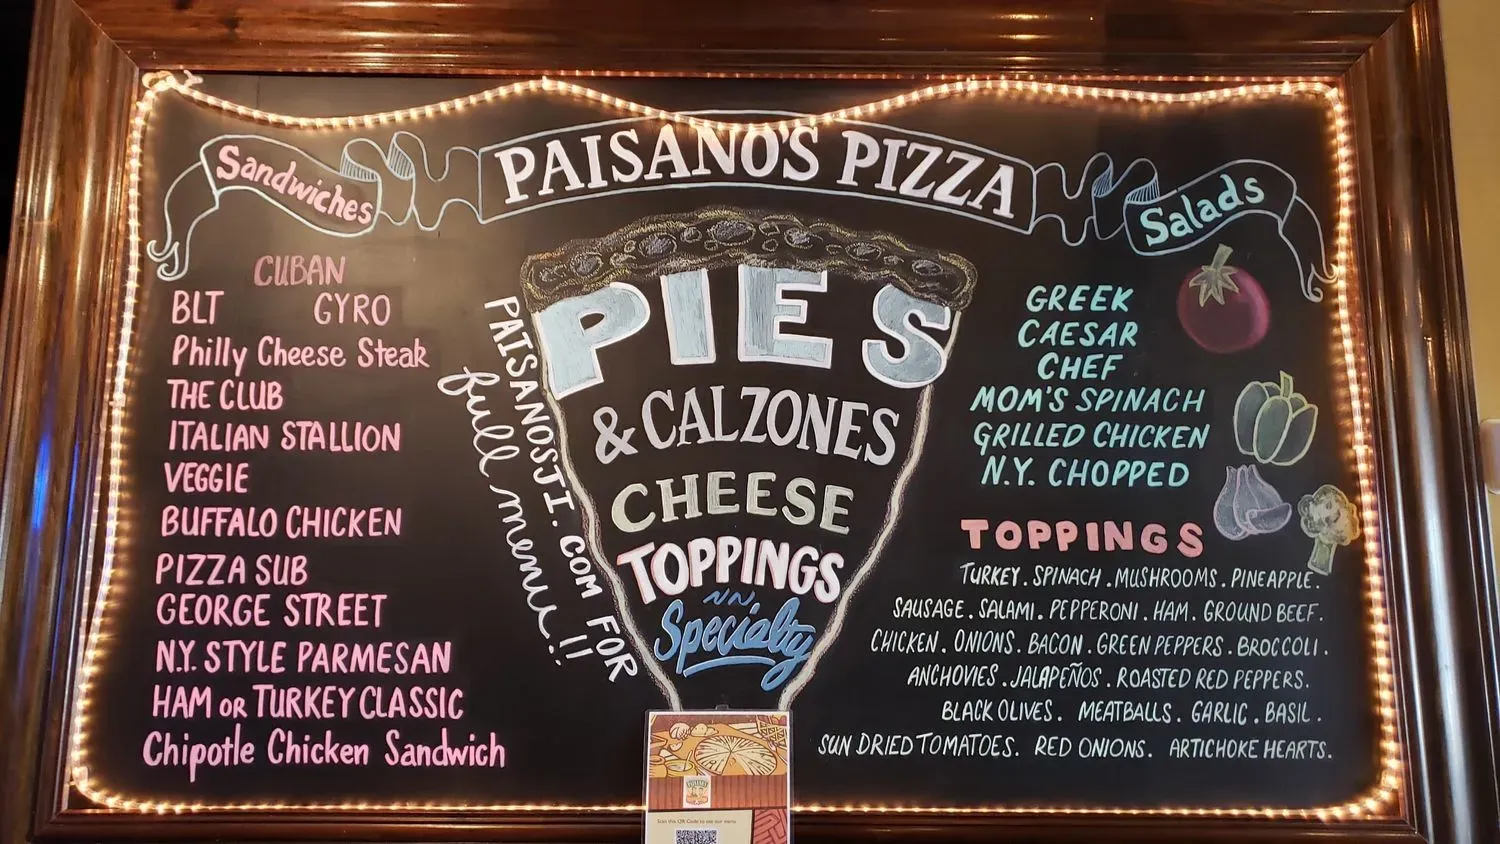 PAISANO'S PIZZA
Sandwiches
CUBAN
BLT GYRO
Philly Cheese Steak
THE CLUB
ITALIAN STALLION
VEGGIE
BUFFALO CHICKEN
PIZZA SUB
GEORGE STREET
N.Y. STYLE PARMESAN
HAM OR TURKEY CLASSIC
Chipotle Chicken Sandwich
PAISANOSJI.COM FOR
full menu!!
PIES
& CALZONES
CHEESE
TOPPINGS
Specialty
Salads
GREEK
CAESAR
CHEF
MOM'S SPINACH
GRILLED CHICKEN
N.Y. CHOPPED
TOPPINGS
TURKEY. SPINACH. MUSHROOMS. PINEAPPLE.
SAUSAGE. SALAMI. PEPPERONI. HAM. GROUND BEEF.
CHICKEN. ONIONS. BACON. GREEN PEPPERS. BROCCOLI.
ANCHOVIES. JALAPEÑOS. ROASTED RED PEPPERS.
BLACK OLIVES. MEATBALLS. GARLIC. BASIL.
SUN DRIED TOMATOES. RED ONIONS. ARTICHOKE HEARTS.
Scan this QR Code to see our menu